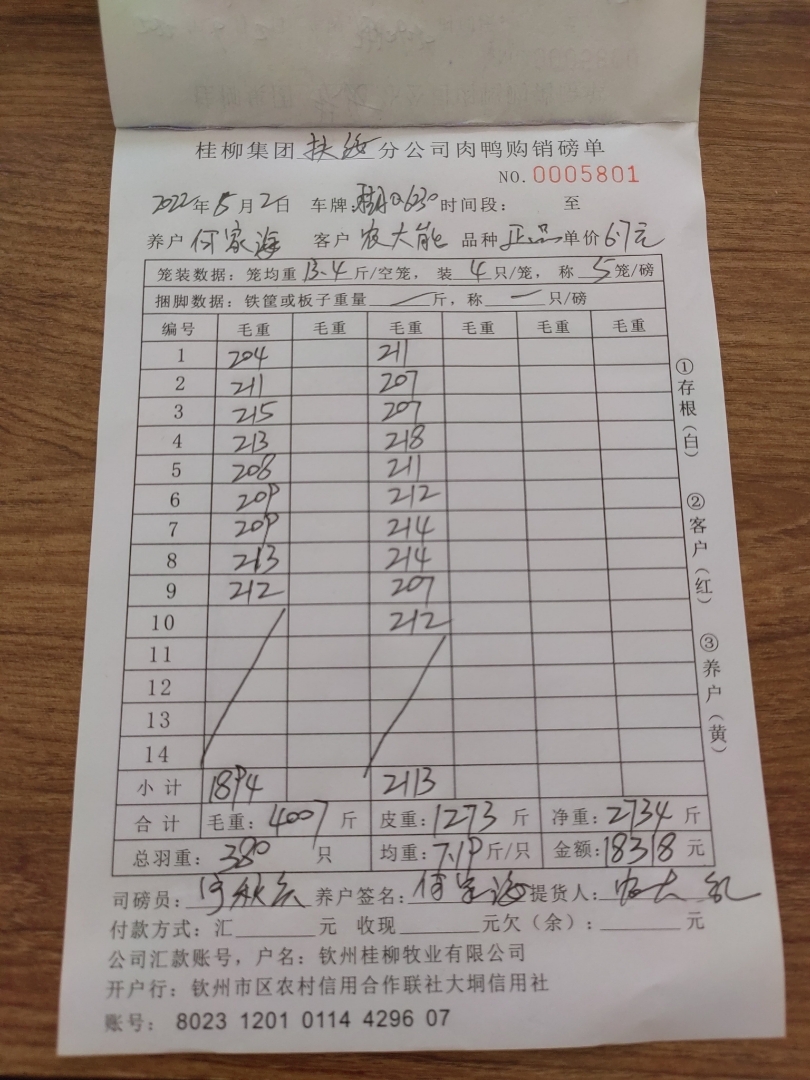 桂柳集团扶绥分公司肉鸭购销磅单
NO.0005801
2022年5月2日 车牌: Q6230 时间段: 至
养户何家海 客户农大能 品种正品单价6.7元
笼装数据：笼均重13.4斤/空笼，装4只/笼，称5笼/磅
捆脚数据：铁筐或板子重量 / 斤，称 一 只/磅
编号 毛重 毛重 毛重 毛重 毛重 毛重
1 204 211
2 211 207
3 215 207
4 213 218
5 208 211
6 209 212
7 209 214
8 213 214
9 212 207
10 212
11
12
13
14
小计 1894 2113
合计 毛重：4007斤 皮重：1273斤 净重：2734斤
总羽重：380只 均重：7.19斤/只 金额：18318元
司磅员： 养户签名：何家海 提货人：农大
付款方式：汇 元 收现 元欠（余）： 元
公司汇款账号，户名：钦州桂柳牧业有限公司
开户行：钦州市区农村信用合作联社大垌信用社
账号： 8023 1201 0114 4296 07
①存根（白）
②客户（红）
③养户（黄）